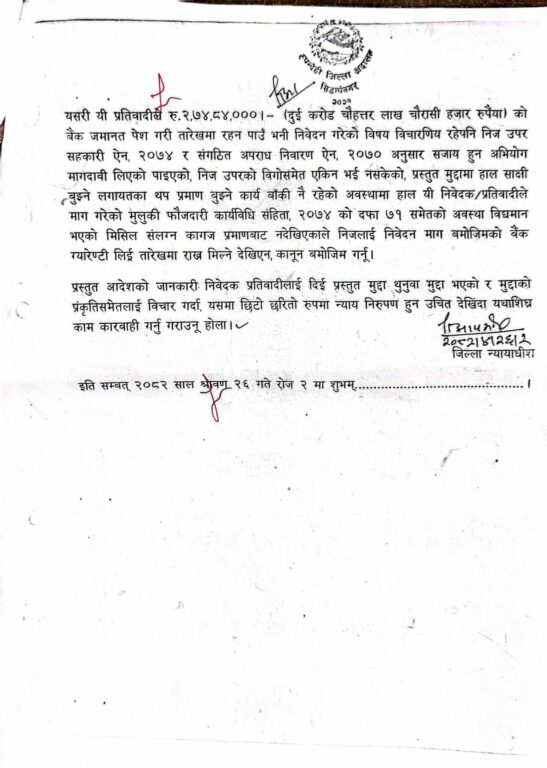 रुपन्देही जिल्ला अदालत
सिद्धार्थनगर
यसरी यी प्रतिवादीले रु.२,७४,८४,०००।- (दुई करोड चौहत्तर लाख चौरासी हजार रुपैंया) को
बैंक जमानत पेश गरी तारेखमा रहन पाउँ भनी निवेदन गरेको विषय विचारणिय रहेपनि निज उपर
सहकारी ऐन, २०७४ र संगठित अपराध निवारण ऐन, २०७० अनुसार सजाय हुन अभियोग
मागदावी लिएको पाइएको, निज उपरको विगोसमेत एकिन भई नसकेको, प्रस्तुत मुद्दामा हाल साक्षी
बुझ्ने लगायतका थप प्रमाण बुझ्ने कार्य बाँकी नै रहेको अवस्थामा हाल यी निवेदक/प्रतिवादीले
माग गरेको मुलुकी फौजदारी कार्यविधि संहिता, २०७४ को दफा ७१ समेतको अवस्था विद्यमान
भएको मिसिल संलग्न कागज प्रमाणबाट नदेखिएकाले निजलाई निवेदन माग बमोजिमको बैंक
ग्यारेण्टी लिई तारेखमा राख्न मिल्ने देखिएन, कानून बमोजिम गर्नू।
प्रस्तुत आदेशको जानकारी निवेदक प्रतिवादीलाई दिई प्रस्तुत मुद्दा थुनुवा मुद्दा भएको र मुद्दाको
प्रकृतिसमेतलाई विचार गर्दा, यसमा छिटो छरितो रुपमा न्याय निरुपण हुन उचित देखिंदा यथाशिघ्र
काम कारवाही गर्नु गराउनू होला।
२०८२।४।२६।२
जिल्ला न्यायाधीश
इति सम्वत् २०८२ साल श्रावण २६ गते रोज २ मा शुभम्.................................।